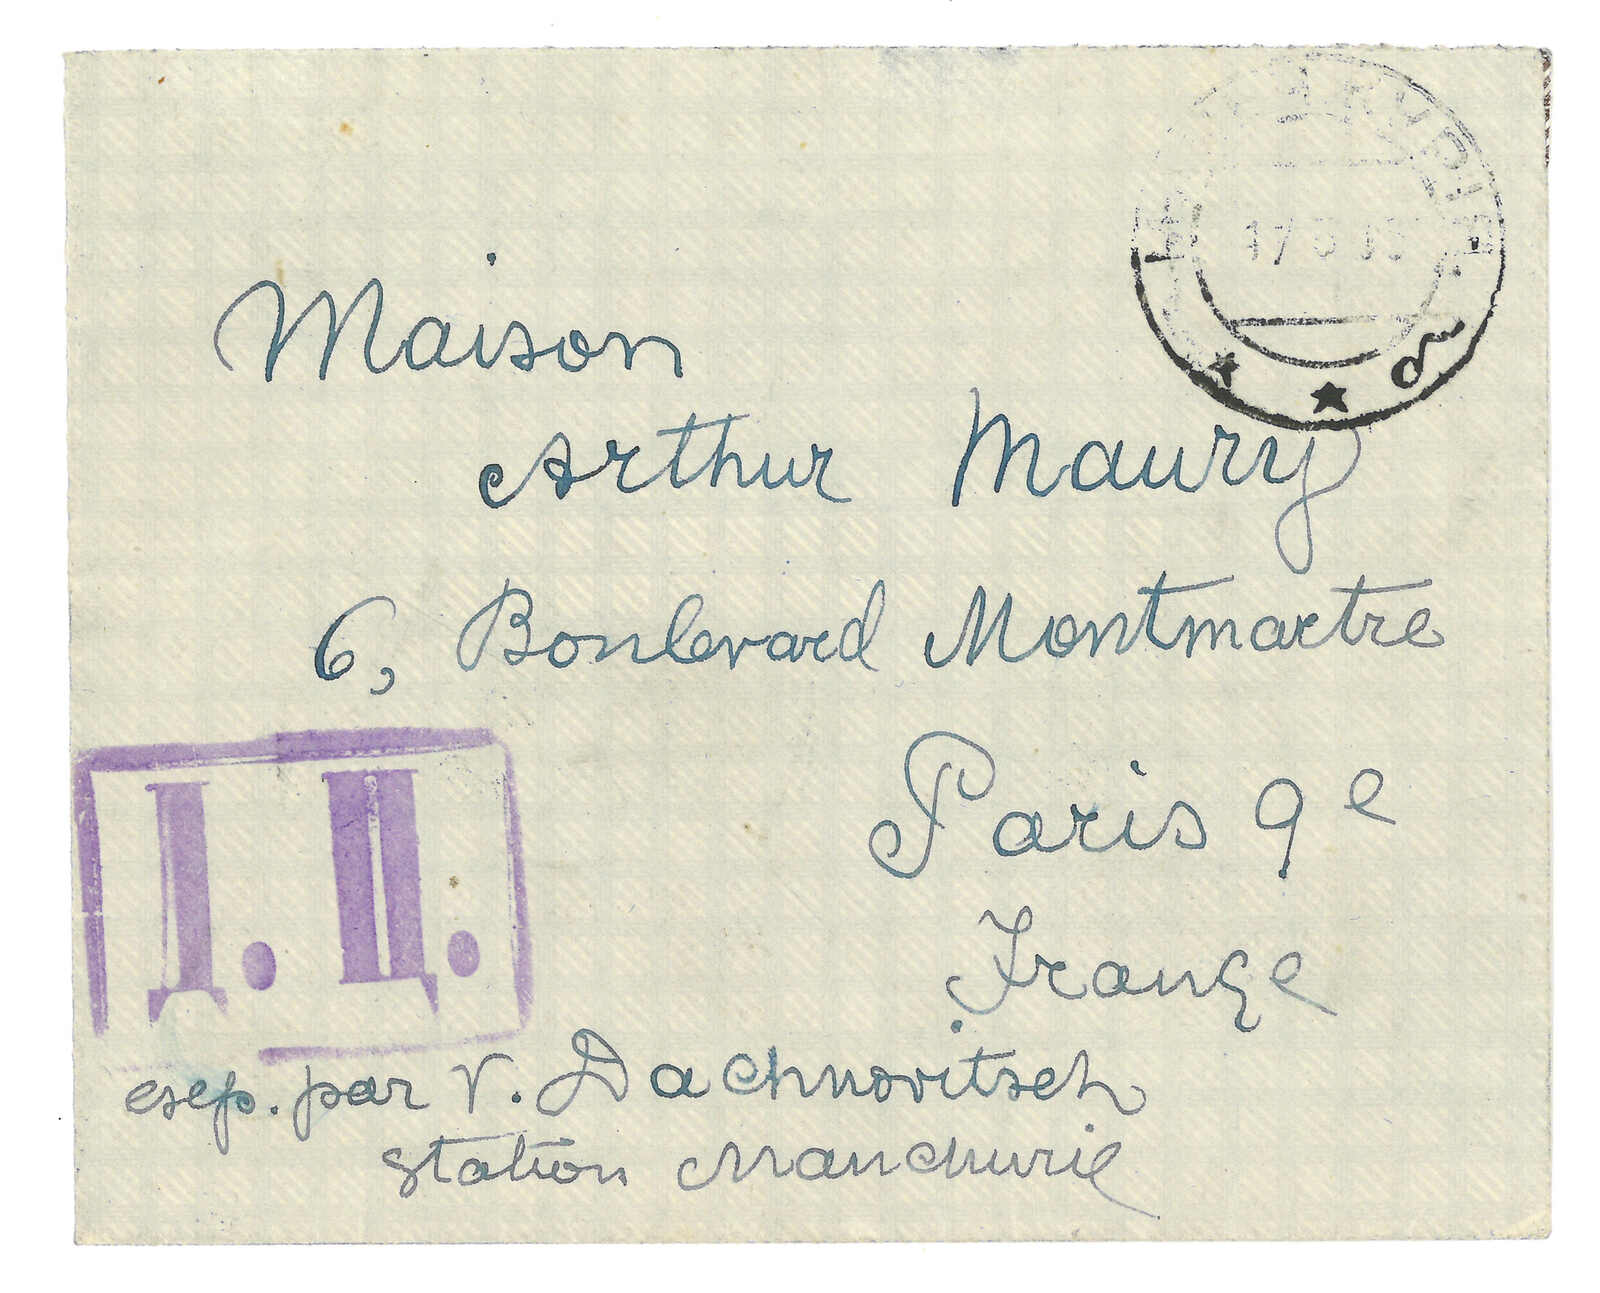 Maison
Arthur Maury
6, Boulevard Montmartre
Paris 9e
France
Д. Ц.
exp. par V. Dachnovitsch
Station Manchurie